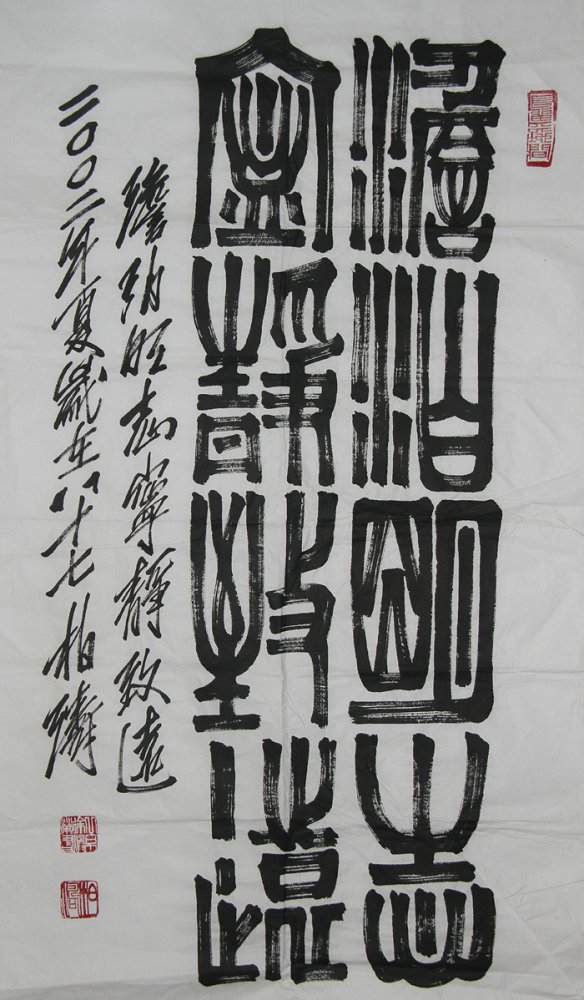 澹泊明志
寧靜致遠
澹泊明志寧靜致遠
二〇〇二年夏歲在八十七柏